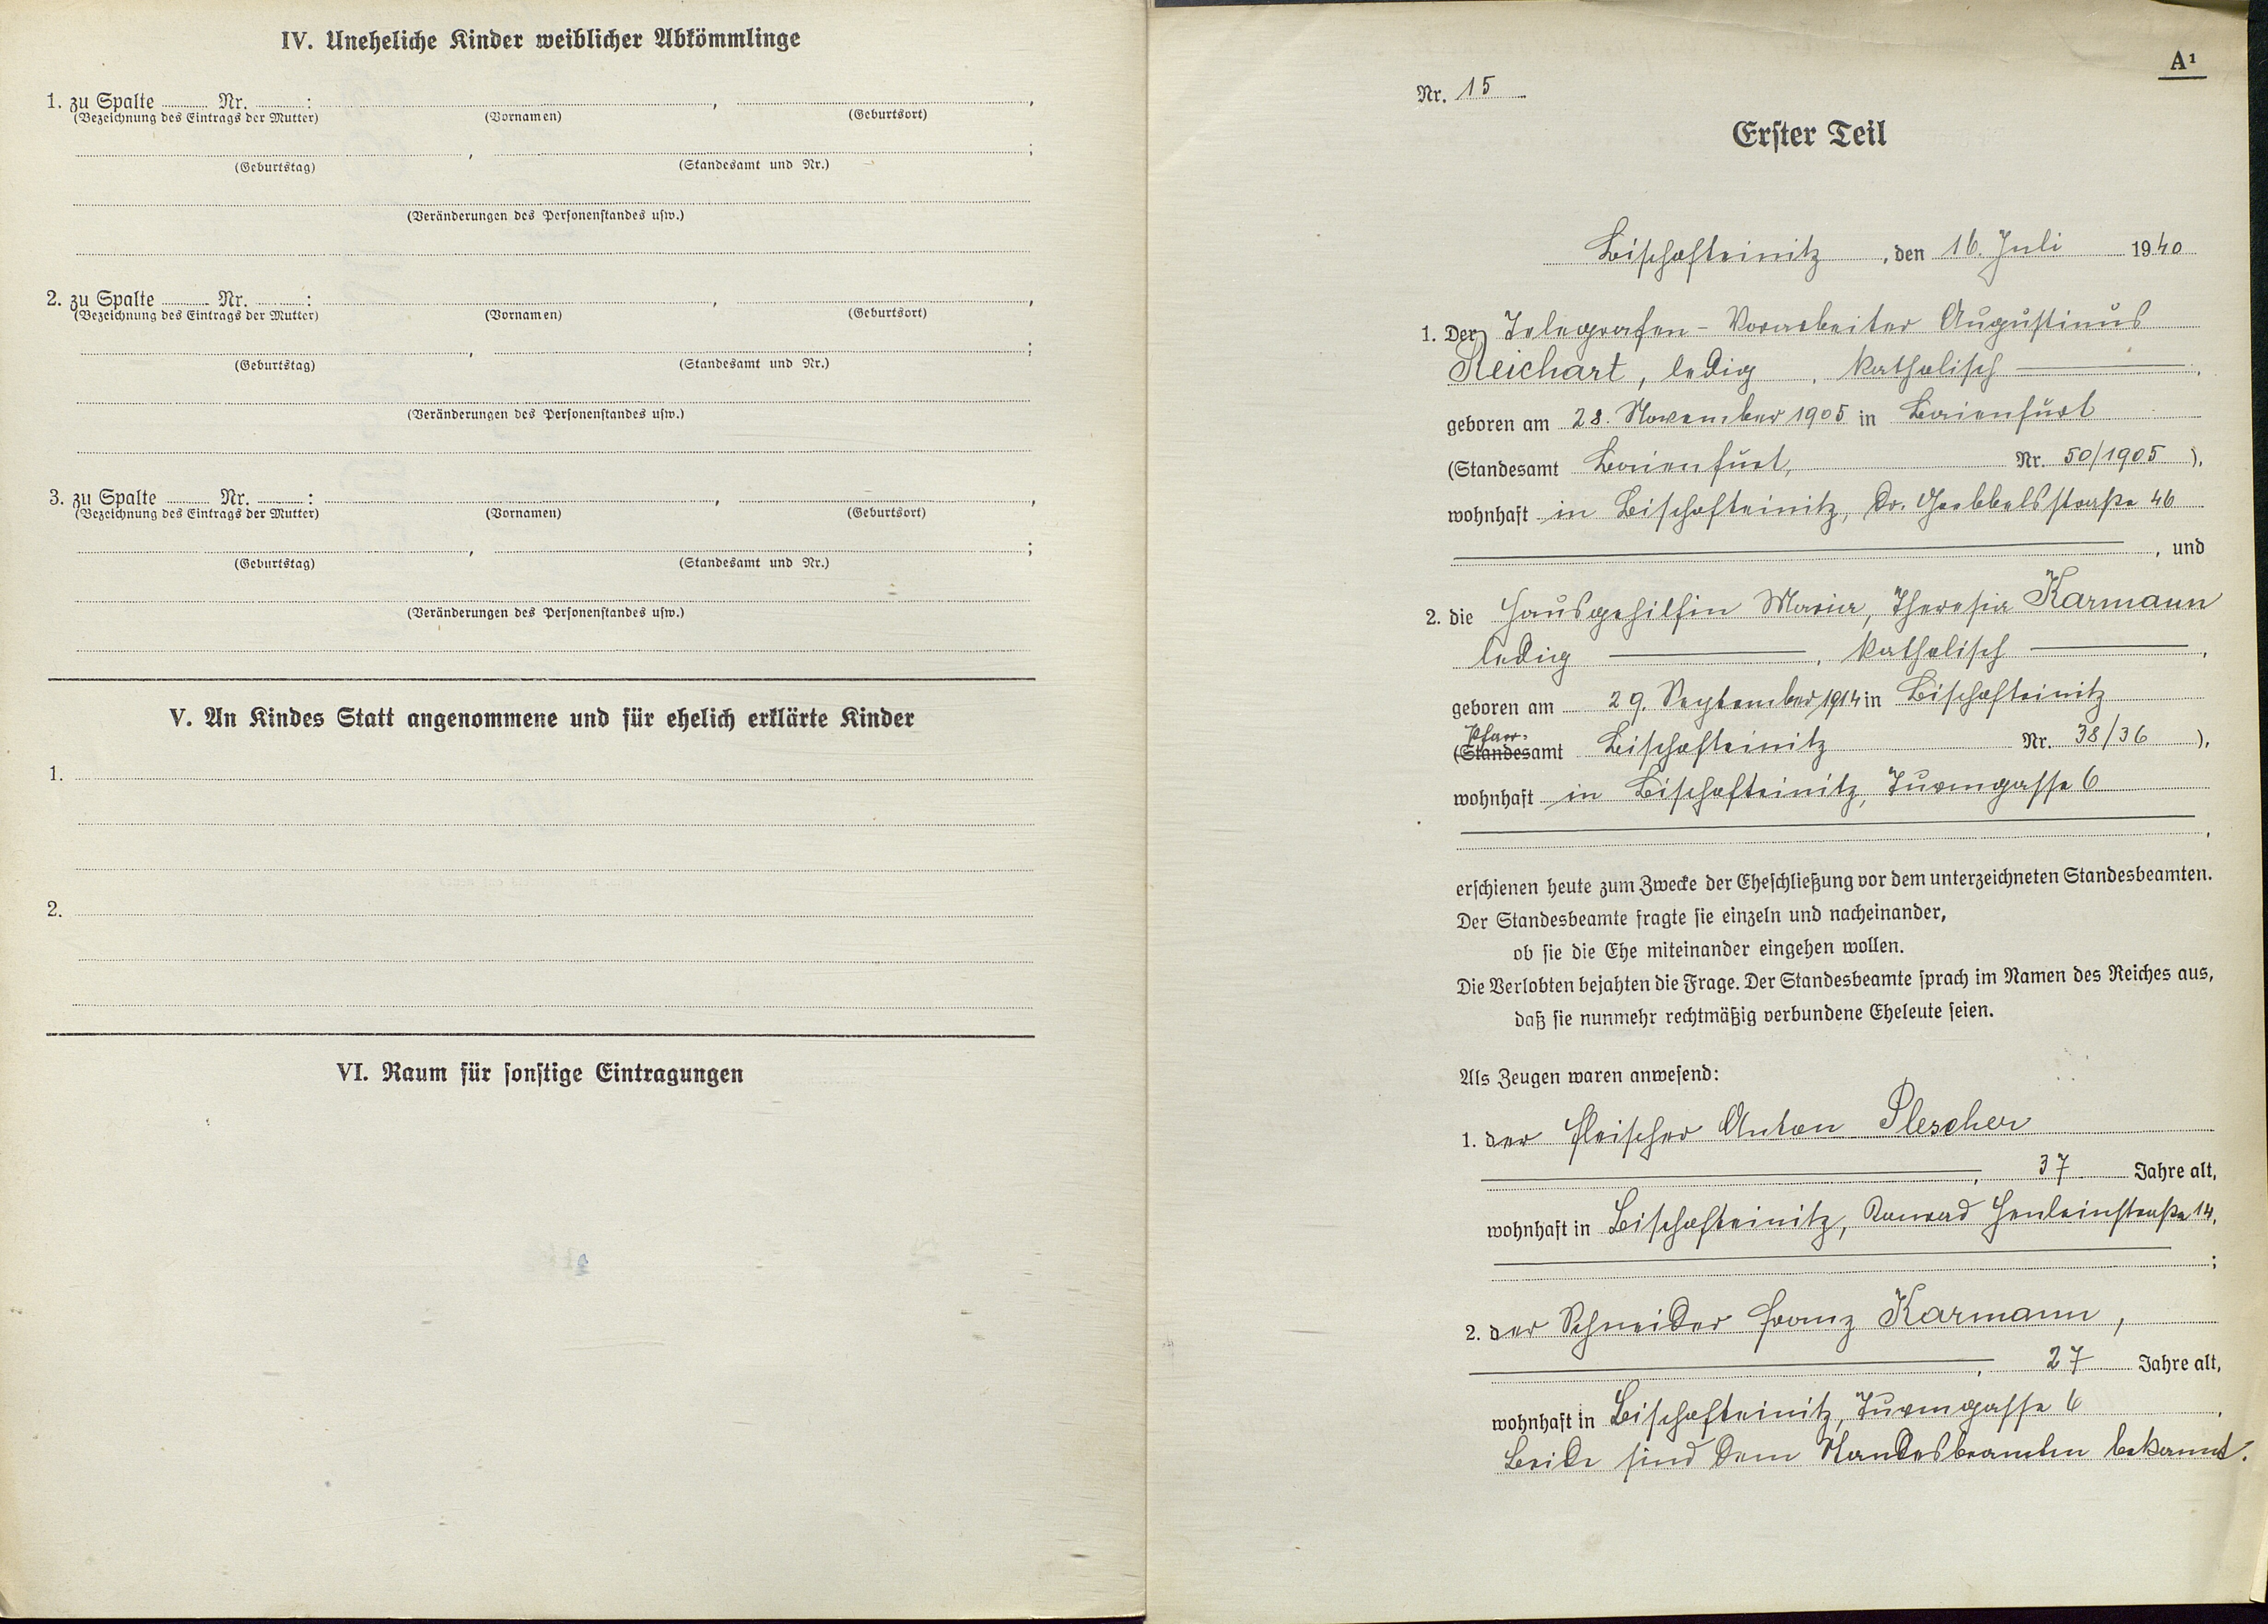 IV. Uneheliche Kinder weiblicher Abkömmlinge
1. zu Spalte Nr. : , ,
(Bezeichnung des Eintrags der Mutter) (Vornamen) (Geburtsort)
, ;
(Geburtstag) (Standesamt und Nr.)
(Veränderungen des Personenstandes usw.)
2. zu Spalte Nr. : , ,
(Bezeichnung des Eintrags der Mutter) (Vornamen) (Geburtsort)
, ;
(Geburtstag) (Standesamt und Nr.)
(Veränderungen des Personenstandes usw.)
3. zu Spalte Nr. : , ,
(Bezeichnung des Eintrags der Mutter) (Vornamen) (Geburtsort)
, ;
(Geburtstag) (Standesamt und Nr.)
(Veränderungen des Personenstandes usw.)
V. An Kindes Statt angenommene und für ehelich erklärte Kinder
1.
2.
VI. Raum für sonstige Eintragungen
A¹
Nr. 15
Erster Teil
Bischofteinitz, den 16. Juli 1940
1. Der Telegrafen-Vorarbeiter Augustinus
Reichart, ledig, katholisch
geboren am 28. November 1905 in Baienfurt
(Standesamt Baienfurt, Nr. 50/1905),
wohnhaft in Bischofteinitz, Dr. Goebbelsstraße 46
, und
2. die Hausgehilfin Maria, Theresia Karmann
ledig, katholisch,
geboren am 29. September 1914 in Bischofteinitz
Pfarr-
(Standesamt Bischofteinitz Nr. 38/36),
wohnhaft in Bischofteinitz, Turmgasse 6
,
erschienen heute zum Zwecke der Eheschließung vor dem unterzeichneten Standesbeamten.
Der Standesbeamte fragte sie einzeln und nacheinander,
ob sie die Ehe miteinander eingehen wollen.
Die Verlobten bejahten die Frage. Der Standesbeamte sprach im Namen des Reiches aus,
daß sie nunmehr rechtmäßig verbundene Eheleute seien.
Als Zeugen waren anwesend:
1. der Fleischer Anton Plescher
, 37 Jahre alt,
wohnhaft in Bischofteinitz, Konrad Henleinstraße 14,
;
2. der Schneider Franz Karmann,
, 27 Jahre alt,
wohnhaft in Bischofteinitz, Turmgasse 6.
Beide sind dem Standesbeamten bekannt.